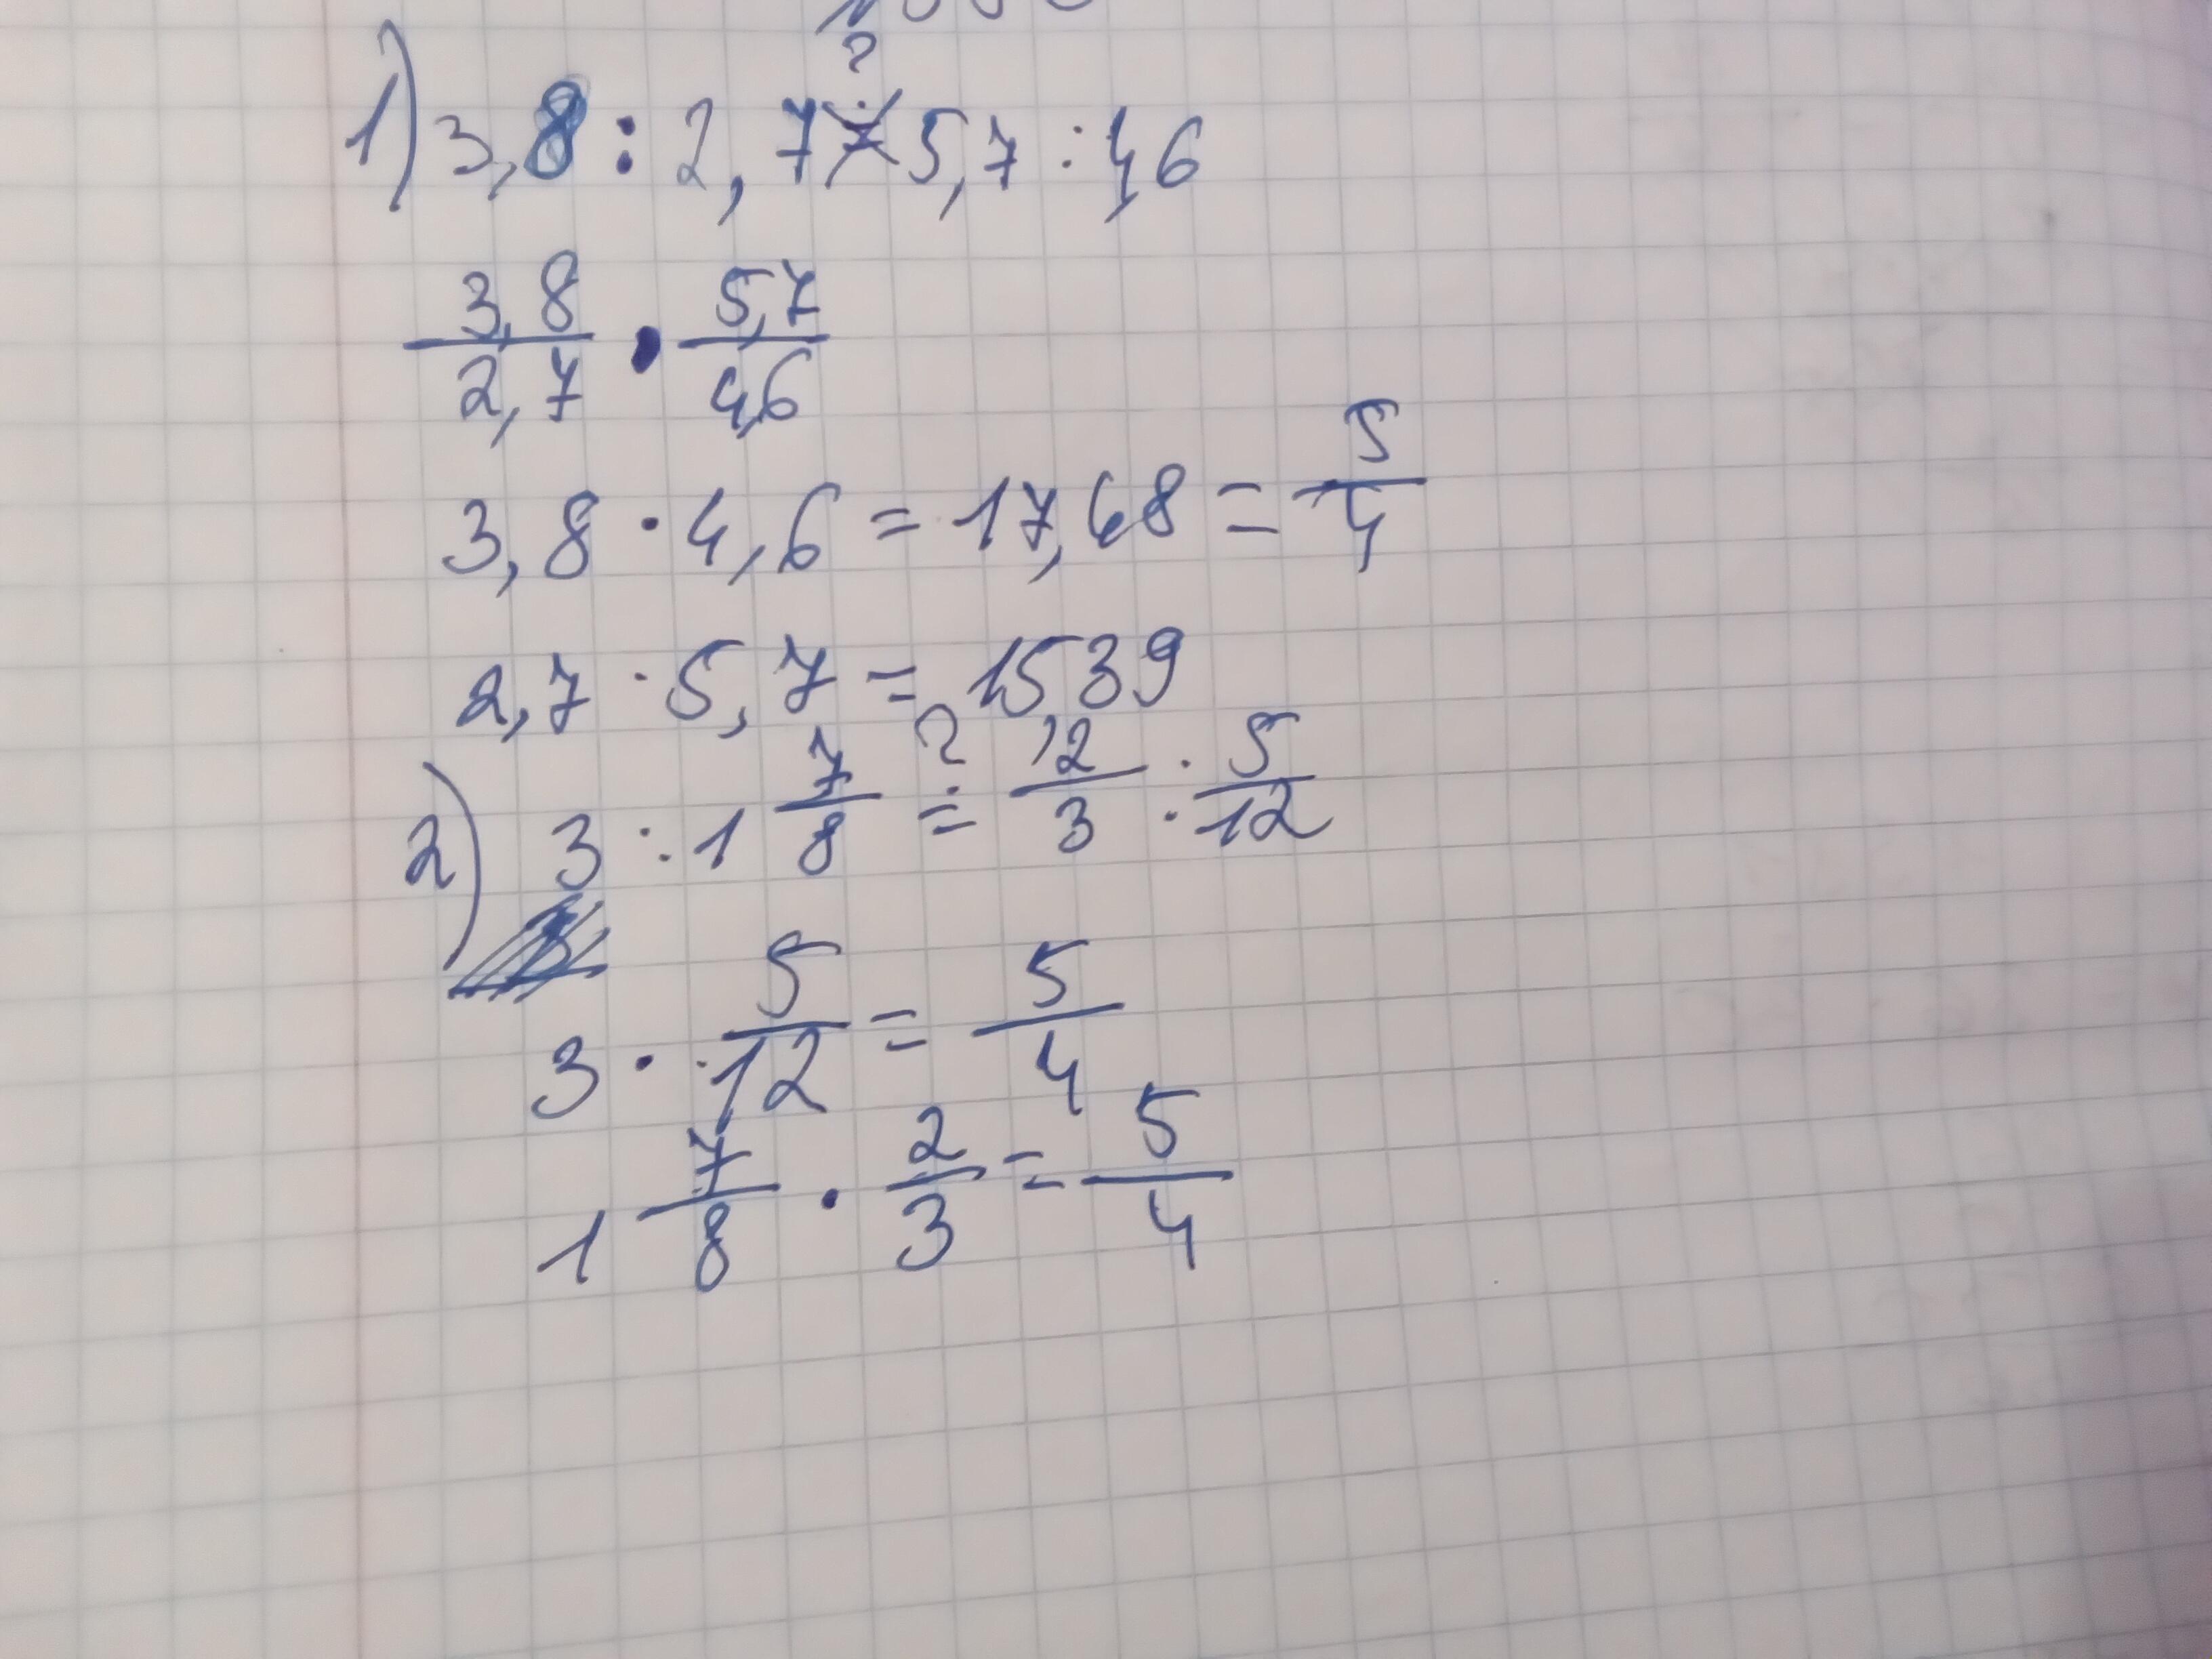 ?
1) 3,8 : 2,7 = 5,7 : 4,6
3,8/2,7 · 5,7/4,6
3,8 · 4,6 = 17,48 = 5/4
2,7 · 5,7 = 15,39
2) 3 : 1 7/8 =? 2/3 : 5/12
3 · 5/12 = 5/4
1 7/8 · 2/3 = 5/4